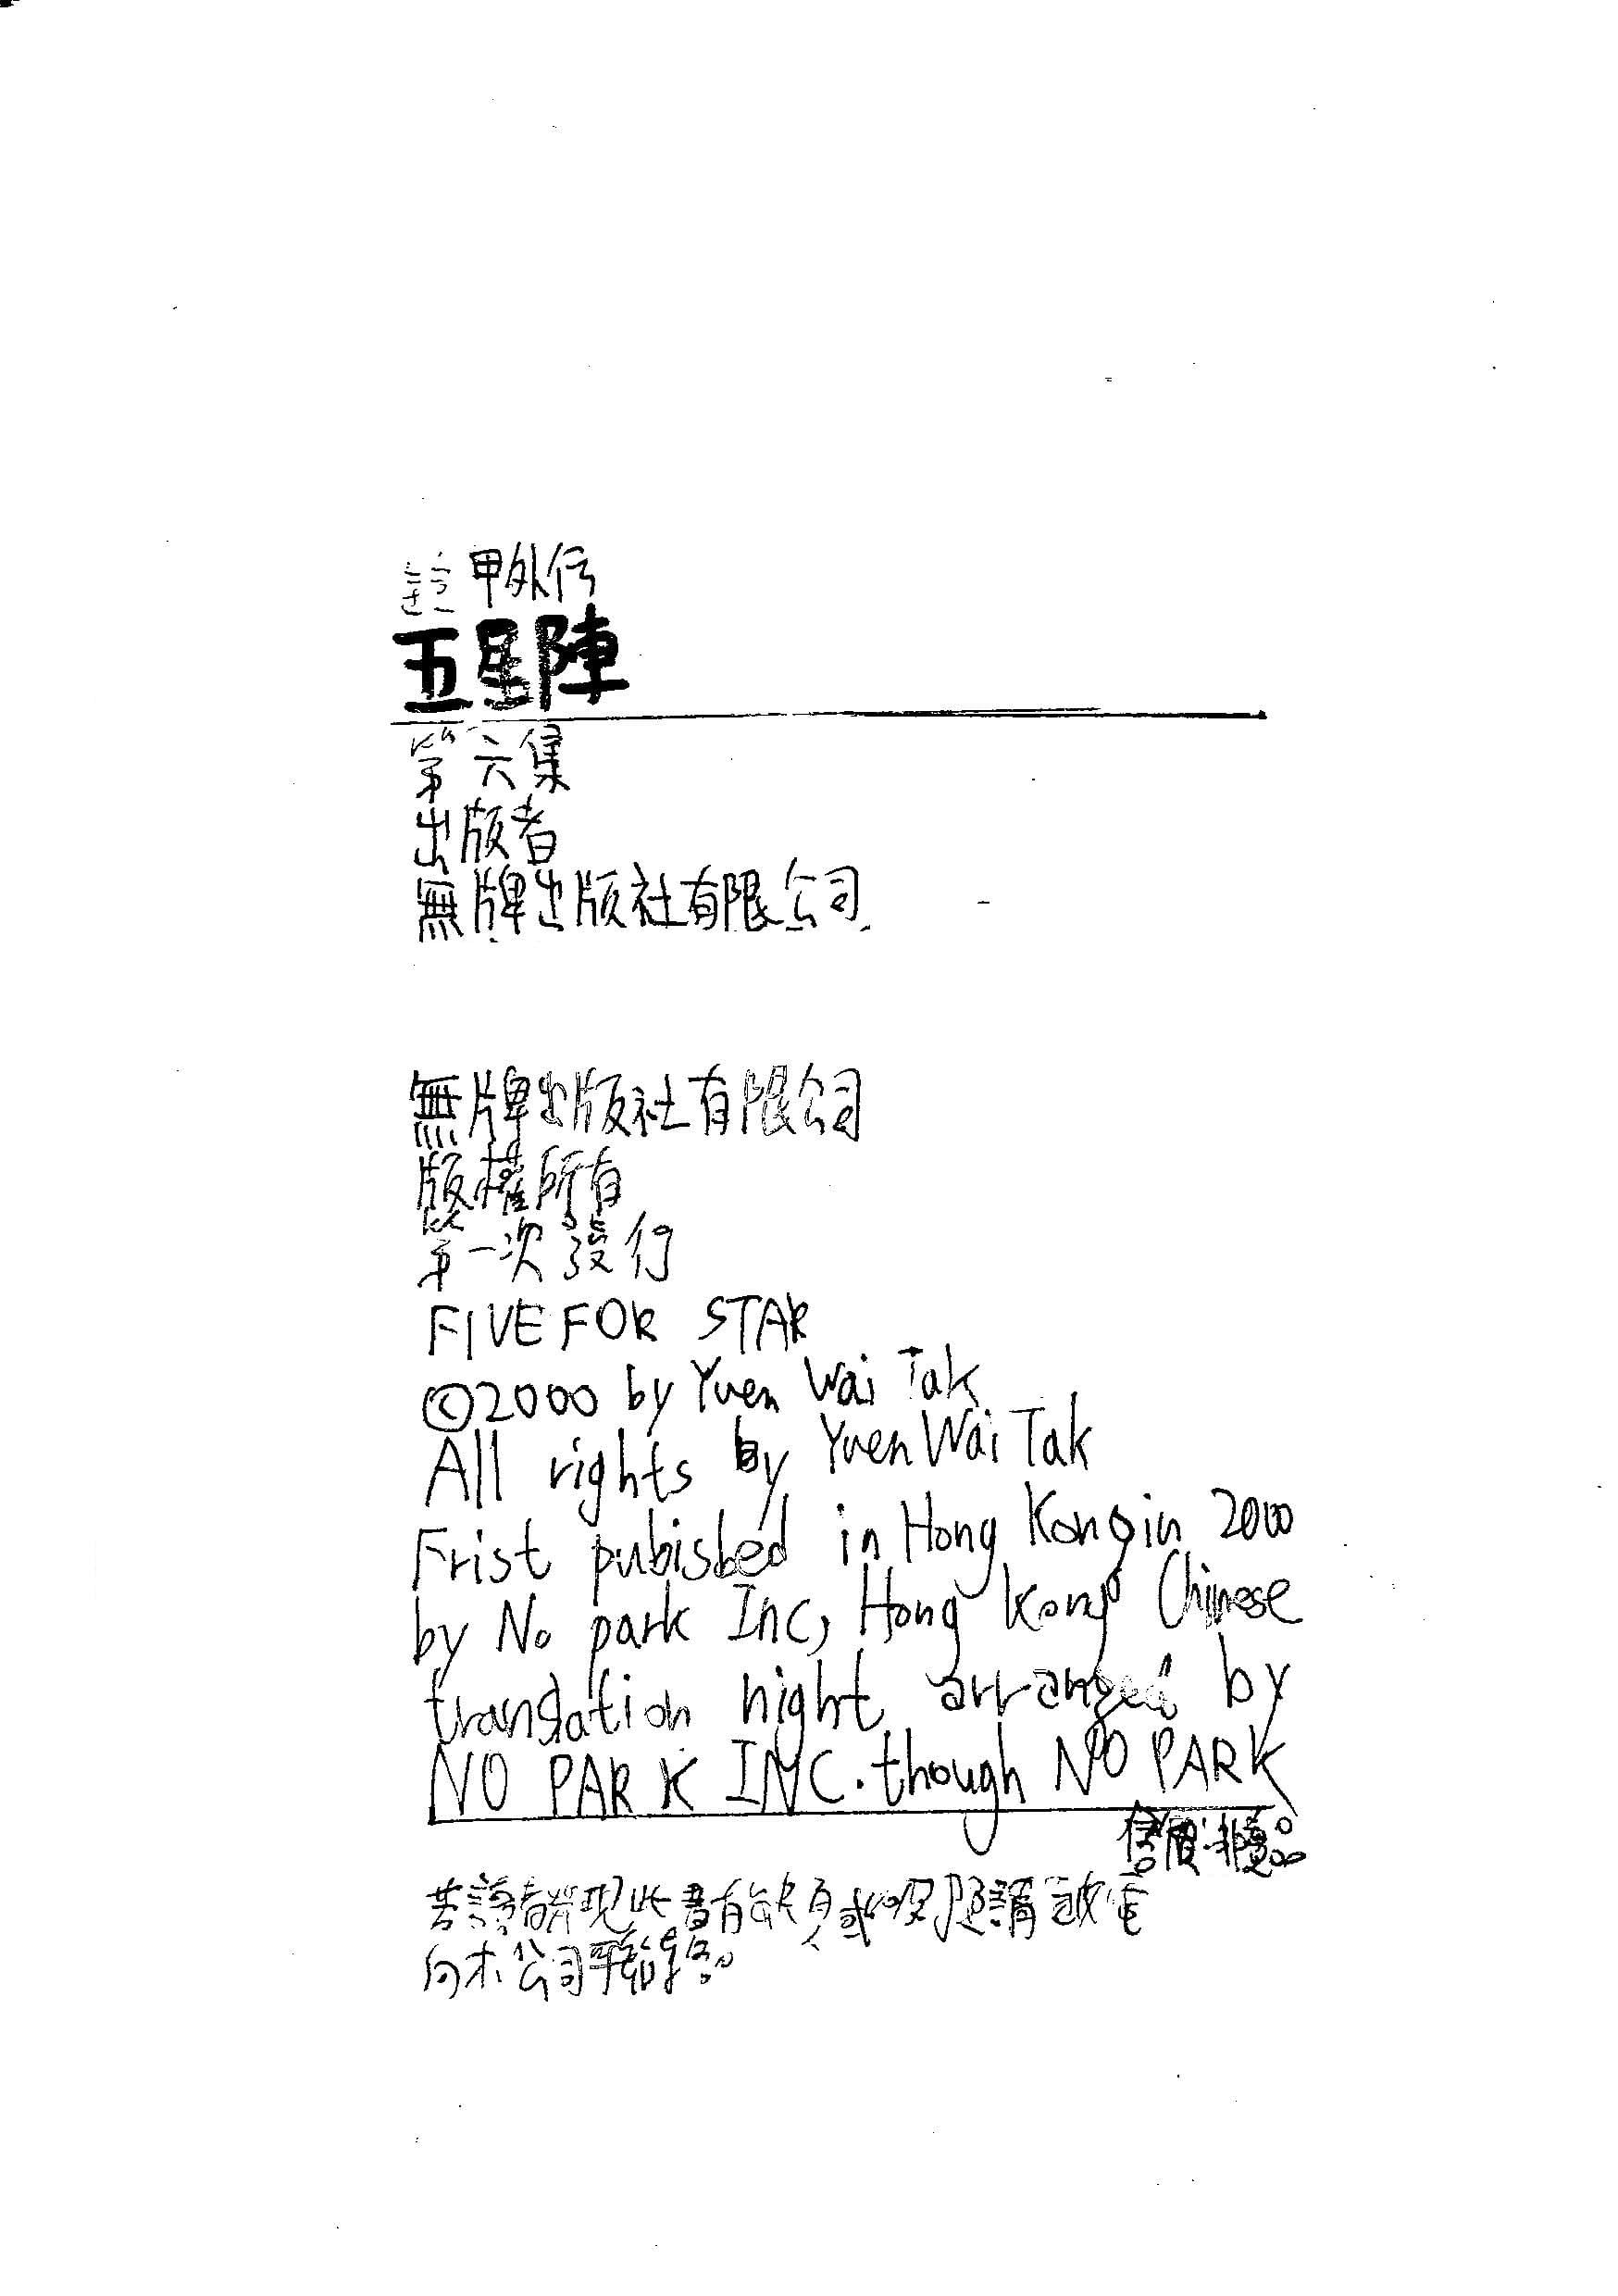 甲外行
五星陣
第六集
出版者
無牌出版社有限公司
無牌出版社有限公司
版權所有
第一次發行
FIVE FOR STAR
©2000 by Yuen Wai Tak
All rights by Yuen Wai Tak
Frist pubisbed in Hong Kong in 2000
by No park Inc, Hong Kong Chinese
translation night arranged by
NO PARK INC. though NO PARK
若讀者發現此書有缺頁或
向本公司聯絡。